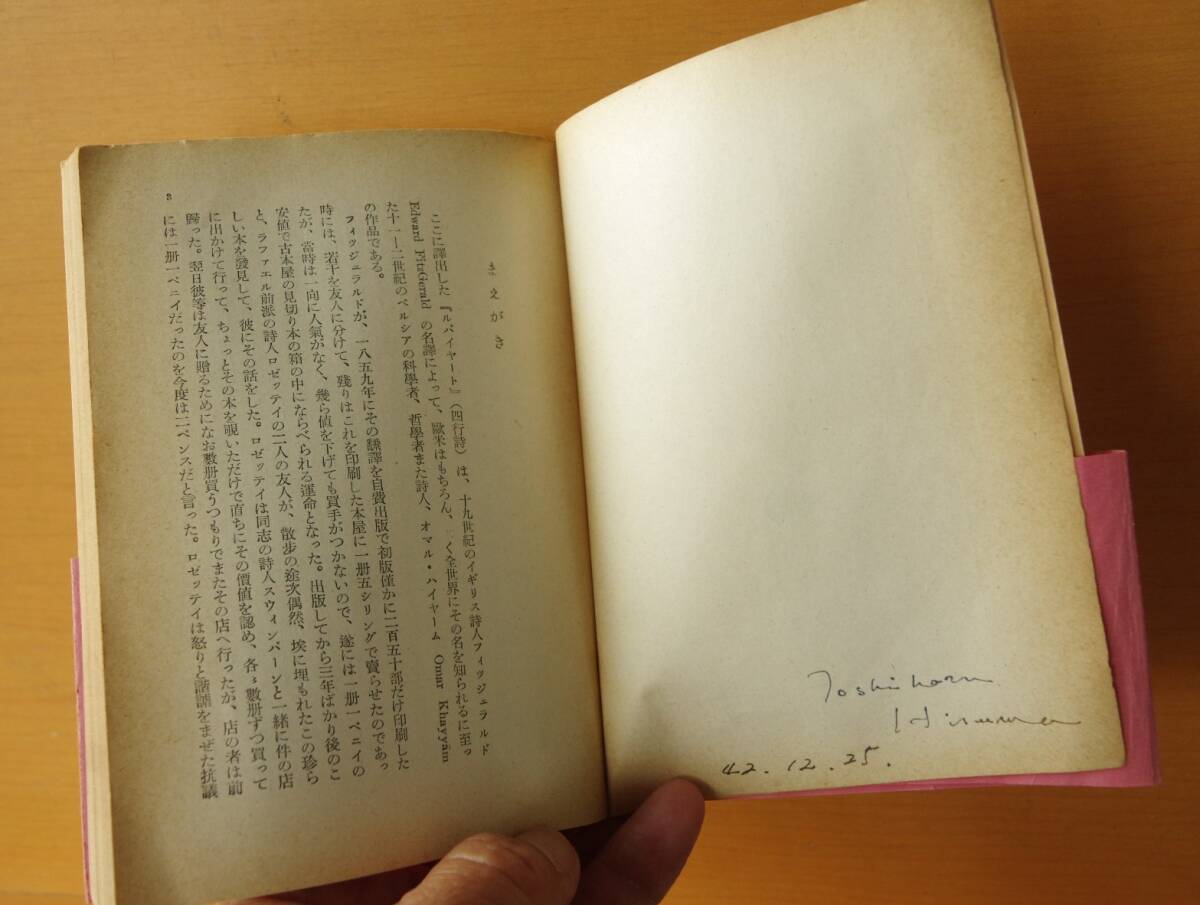 まえがき
ここに譯出した『ルバイヤート』(四行詩)は、十九世紀のイギリス詩人フィツジェラルド
Edward FitzGerald の名譯によって、歐米はもちろん、く全世界にその名を知られるに至っ
た十一—二世紀のペルシアの科學者、哲學者また詩人、オマル・ハイヤーム Omar Khayyām
の作品である。
フィツジェラルドが、一八五九年にその飜譯を自費出版で初版僅かに二百五十部だけ印刷した
時には、若干を友人に分けて、残りはこれを印刷した本屋に一册五シリングで賣らせたのであっ
たが、當時は一向に人氣がなく、幾ら値を下げても買手がつかないので、遂には一册一ペニイの
安値で古本屋の見切り本の箱の中にならべられる運命となった。出版してから三年ばかり後のこ
と、ラファエル前派の詩人ロゼッテイの二人の友人が、散歩の途次偶然、埃に埋もれたこの珍ら
しい本を發見して、彼にその話をした。ロゼッテイは同志の詩人スウィンバーンと一緒に件の店
に出かけて行って、ちょっとその本を覗いただけで直ちにその價値を認め、各〻數册ずつ買って
歸った。翌日彼等は友人に贈るためになお數册買うつもりでまたその店へ行ったが、店の者は前
には一册一ペニイだったのを今度は二ペンスだと言った。ロゼッテイは怒りと諧謔をまぜた抗議
3
Toshiharu
42.12.25.